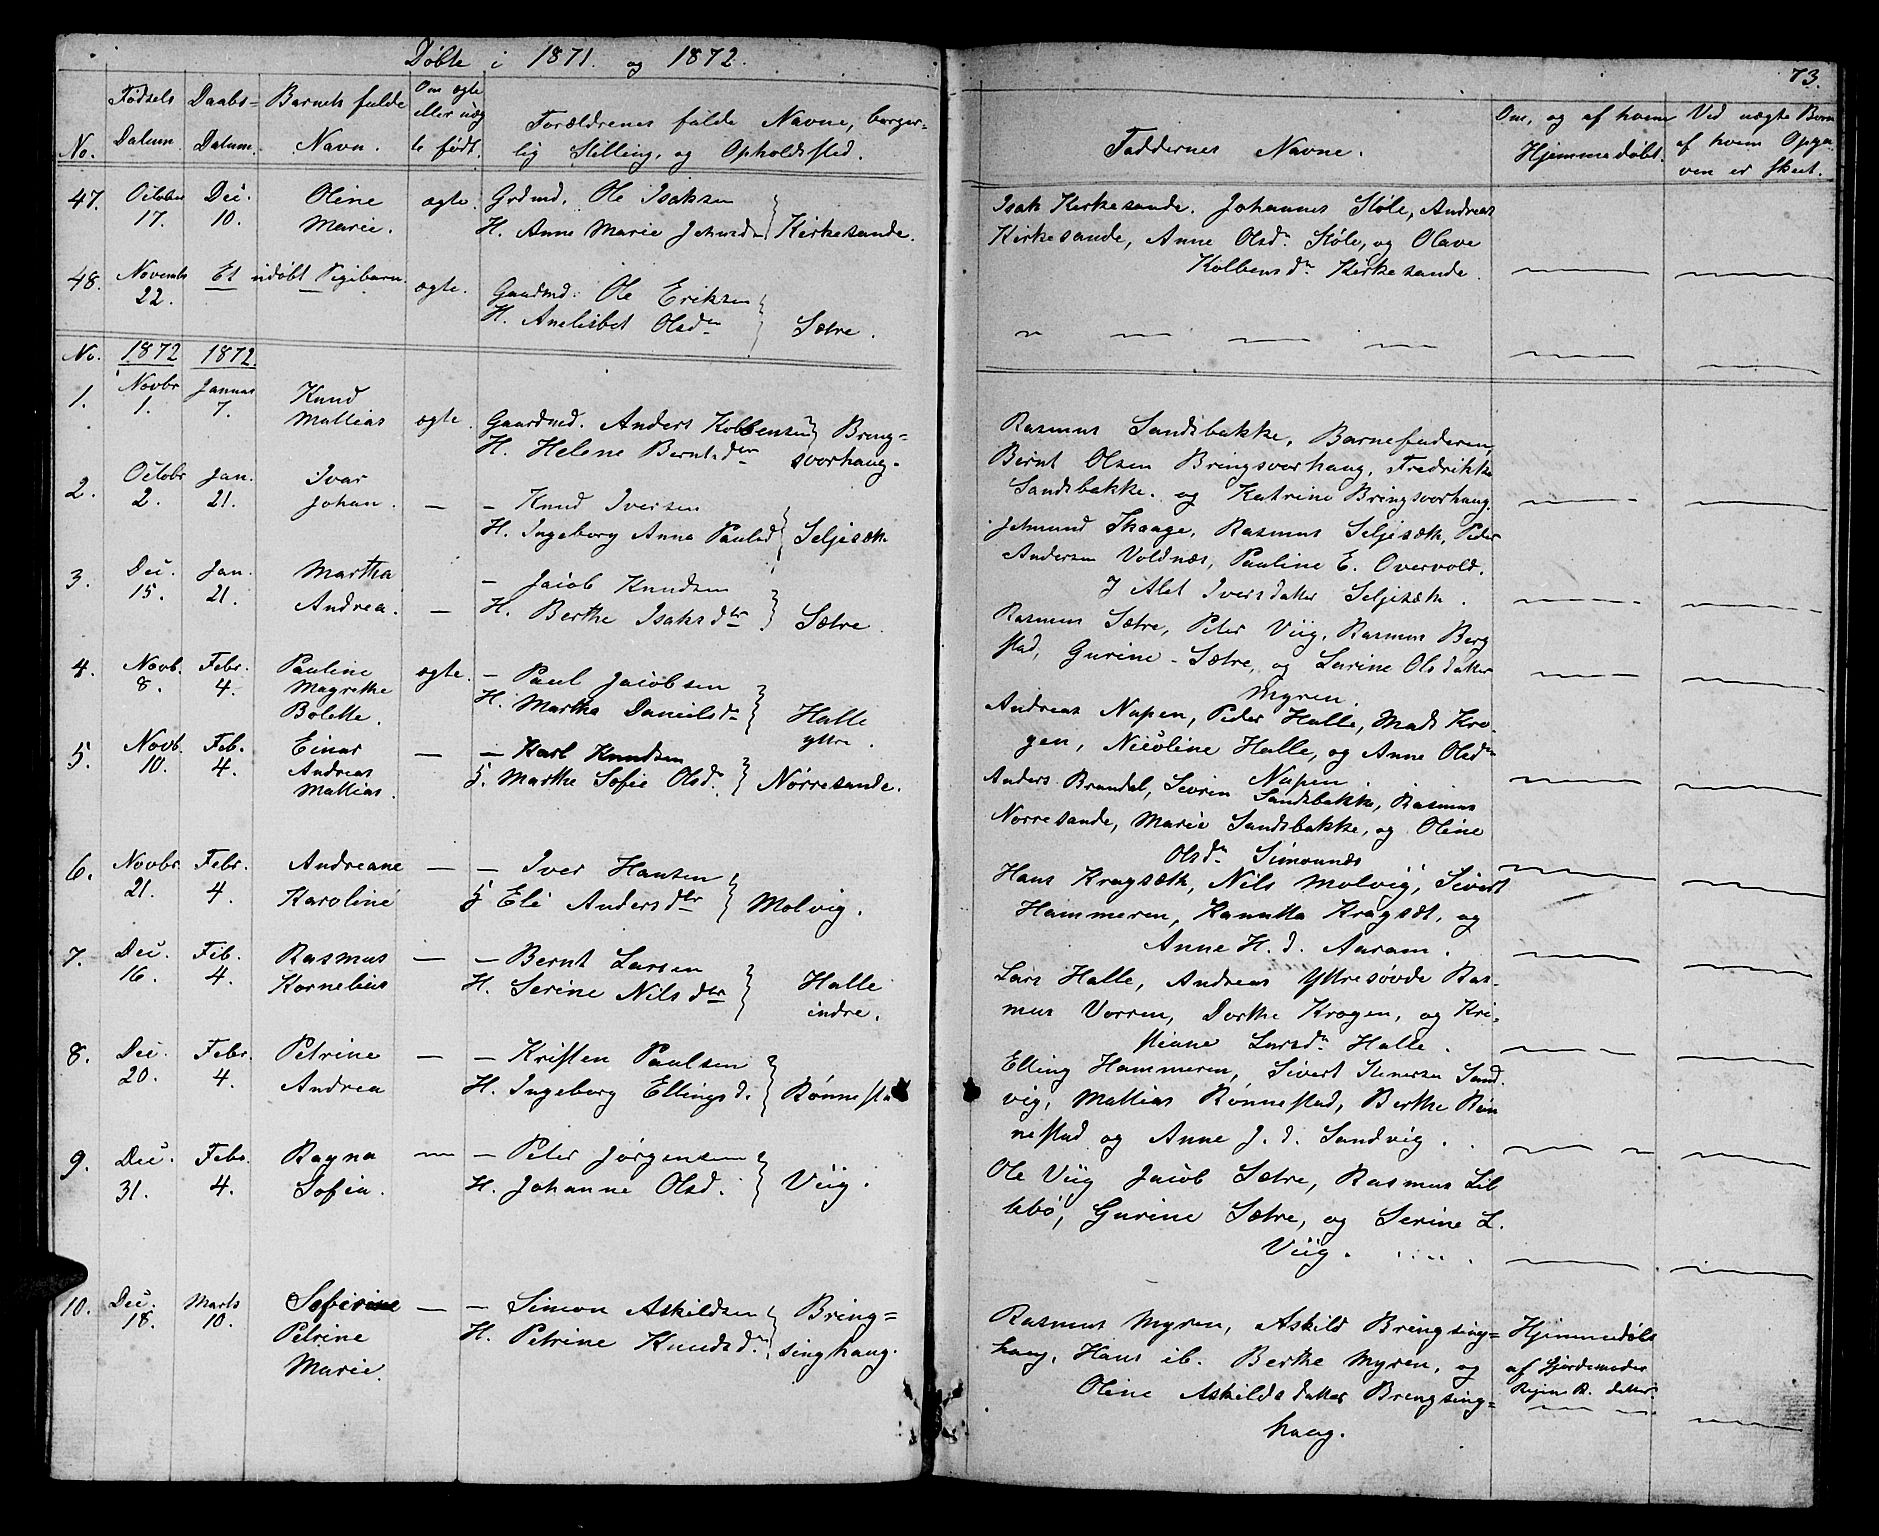 Døbte i 1871. og 1872.
73.
No. Fødsels Datum Daabs-Datum. Barnets fulde Navn. Om ægte eller uæg te født. Forældrenes fulde Navne, borger-
lig Stilling, og Opholdsted.
Faddernes Navne.
Om, og af hvem Hjemmedøbt.
Ved uægte Børn af hvem Opga ven er skeet.
47. October 17. Dec. 10. Oline Marie. ægte. Grdmd. Ole Isaksen
H. Anne Marie Kirkesande.
Isak Kirkesande. Johannes Støle, Andreas
Kirkesande, Anne Olsdr Støle, og Olave
Kolbensdr Kirkesande.
48. Novemb 22. Et udøbt Pigebarn ægte. Gaardmd. Ole Eriksen
H. Anelisbet Olsdr Sætre.
No. 1872 1872.
1. Novbr 1. Januar 7. Knud Mattias ægte. Gaardmd. Anders Kolbensen Bring=
H. Helene Berntsdtr svorhaug.
Rasmus Sandsbakke, Barnefaderen,
Bernt Olsen Bringsvorhaug, Fredrikke
Sandsbakke. og Katrine Bringsvorhaug.
2. Octobr 2. Jan. 21. Ivar Johan. — — Knud Iversen
H. Ingeborg Anna Paulsd Seljesæth
Jetmund Skaage, Rasmus Seljesæth, Peder
Andersen Voldnæs, Pauline E. Overvold.
J Alet Iversdatter Seljesæth.
3. Dec. 15. Jan. 21. Martha Andrea. — — Jacob Knudsen
H. Berthe Isaksdtr Sætre.
Rasmus Sætre, Peter Viig, Rasmus Berg
stad, Gurine Sætre, og Laurine Olsdatter
Myren.
4. Novb. 8. Febr. 4. Pauline Magrethe Bolette. ægte. — Paul Jacobsen
H. Martha Danielsdr Halle yttre.
Andreas Nupen, Peder Halle, Mads Kro-
gen, Nicoline Halle, og Anne Olsdr
Nupen.
5. Novb. 10. Feb. 4. Einar Andreas Mattias. — — Karl Knudsen
H. Marthe Sofie Olsdr. Nørresande.
Anders Brandal, Sevrin Sandsbakke, Rasmus
Nørresande, Marie Sandsbakke, og Oline
Olsdr Simonnæs
6. Novbr. 21. Febr. 4. Andreane Karoline — — Iver Hansen
H Eli Andersdtr Molvig.
Hans Kragsæth, Nils Molvig, Sivert
Hammeren, Kanutta Kragsæt, og
Anne H. d. Aaram.
7. Dec. 16. Feb. 4. Rasmus Kornelius — — Bernt Larsen
H. Serine Nilsdtr Halle indre.
Lars Halle, Andreas Yttresøvde Ras-
mus Vorren, Dorthe Krogen, og Kri-
stiane Larsdr Halle.
8. Dec. 20. Febr. 4. Petrine Andrea — — Kristen Paulsen
H. Ingeborg Ellingsd. Rønnestad
Elling Hammeren, Sivert Stenersen Sand.
vig, Mattias Rønnestad, Berthe Røn
nestad og Anne J. d. Sandvig.
9. Dec. 31. Febr. 4. Ragna Sofia. — — Peter Jørgensen
H. Johanne Olsd. Viig.
Ole Viig Jacob Sætre, Rasmus Lil
lebø, Gurine Sætre, og Serine L.
Viig.
10. Dec. 18. Marts 10. Severine Petrine Marie. — — Simon Askildsen Bring=
H. Petrine Knudsd. singhaug.
Rasmus Myren, Askild Bringsing=
haug, Hans ib. Berthe Myren, og
Oline Askildsdatter Bringsing=
haug.
Hjemmedøbt
af Gjordemoder
Regine R. datter.